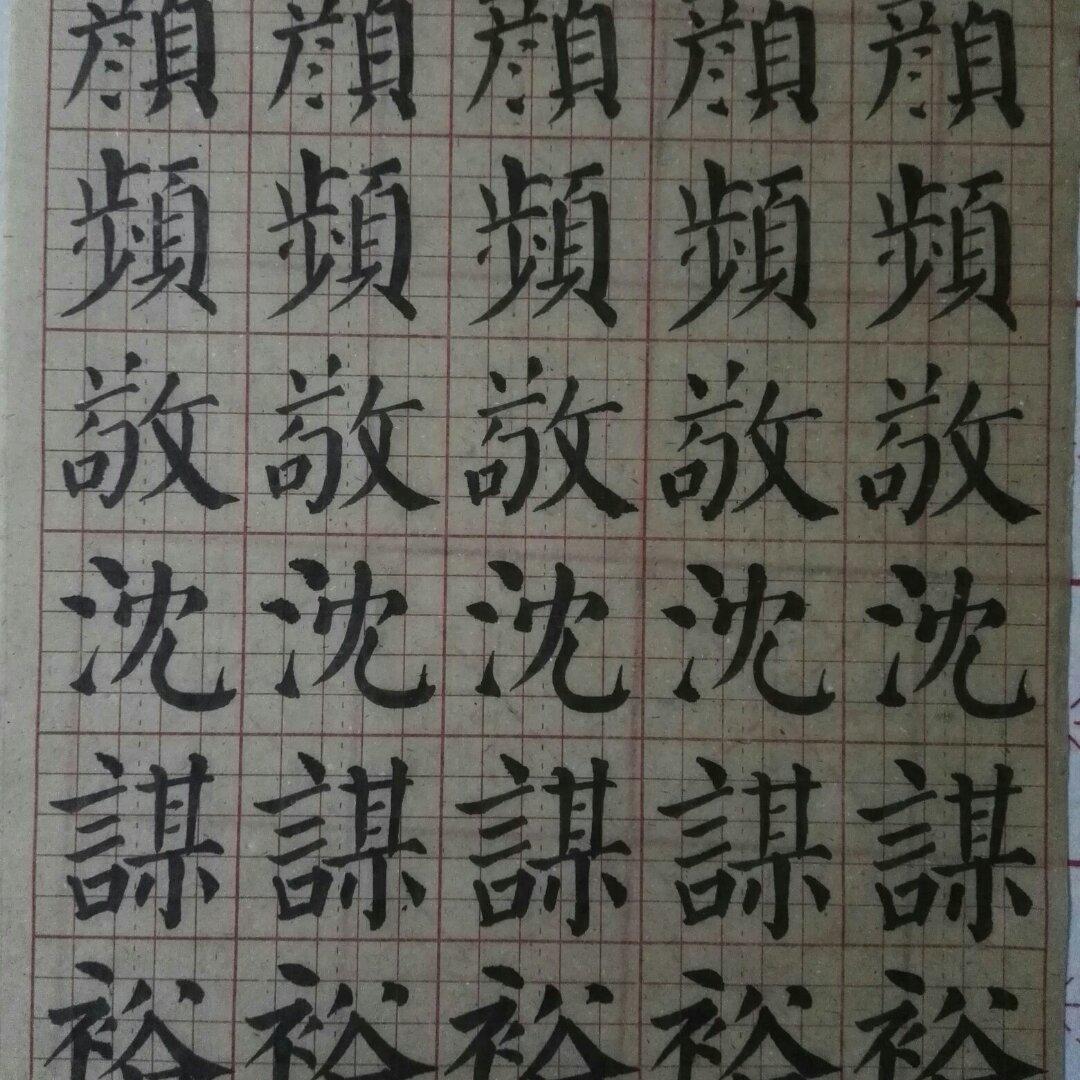 顔顔顔顔顔
頻頻頻頻頻
敬敬敬敬敬
沈沈沈沈沈
謀謀謀謀謀
裕裕裕裕裕